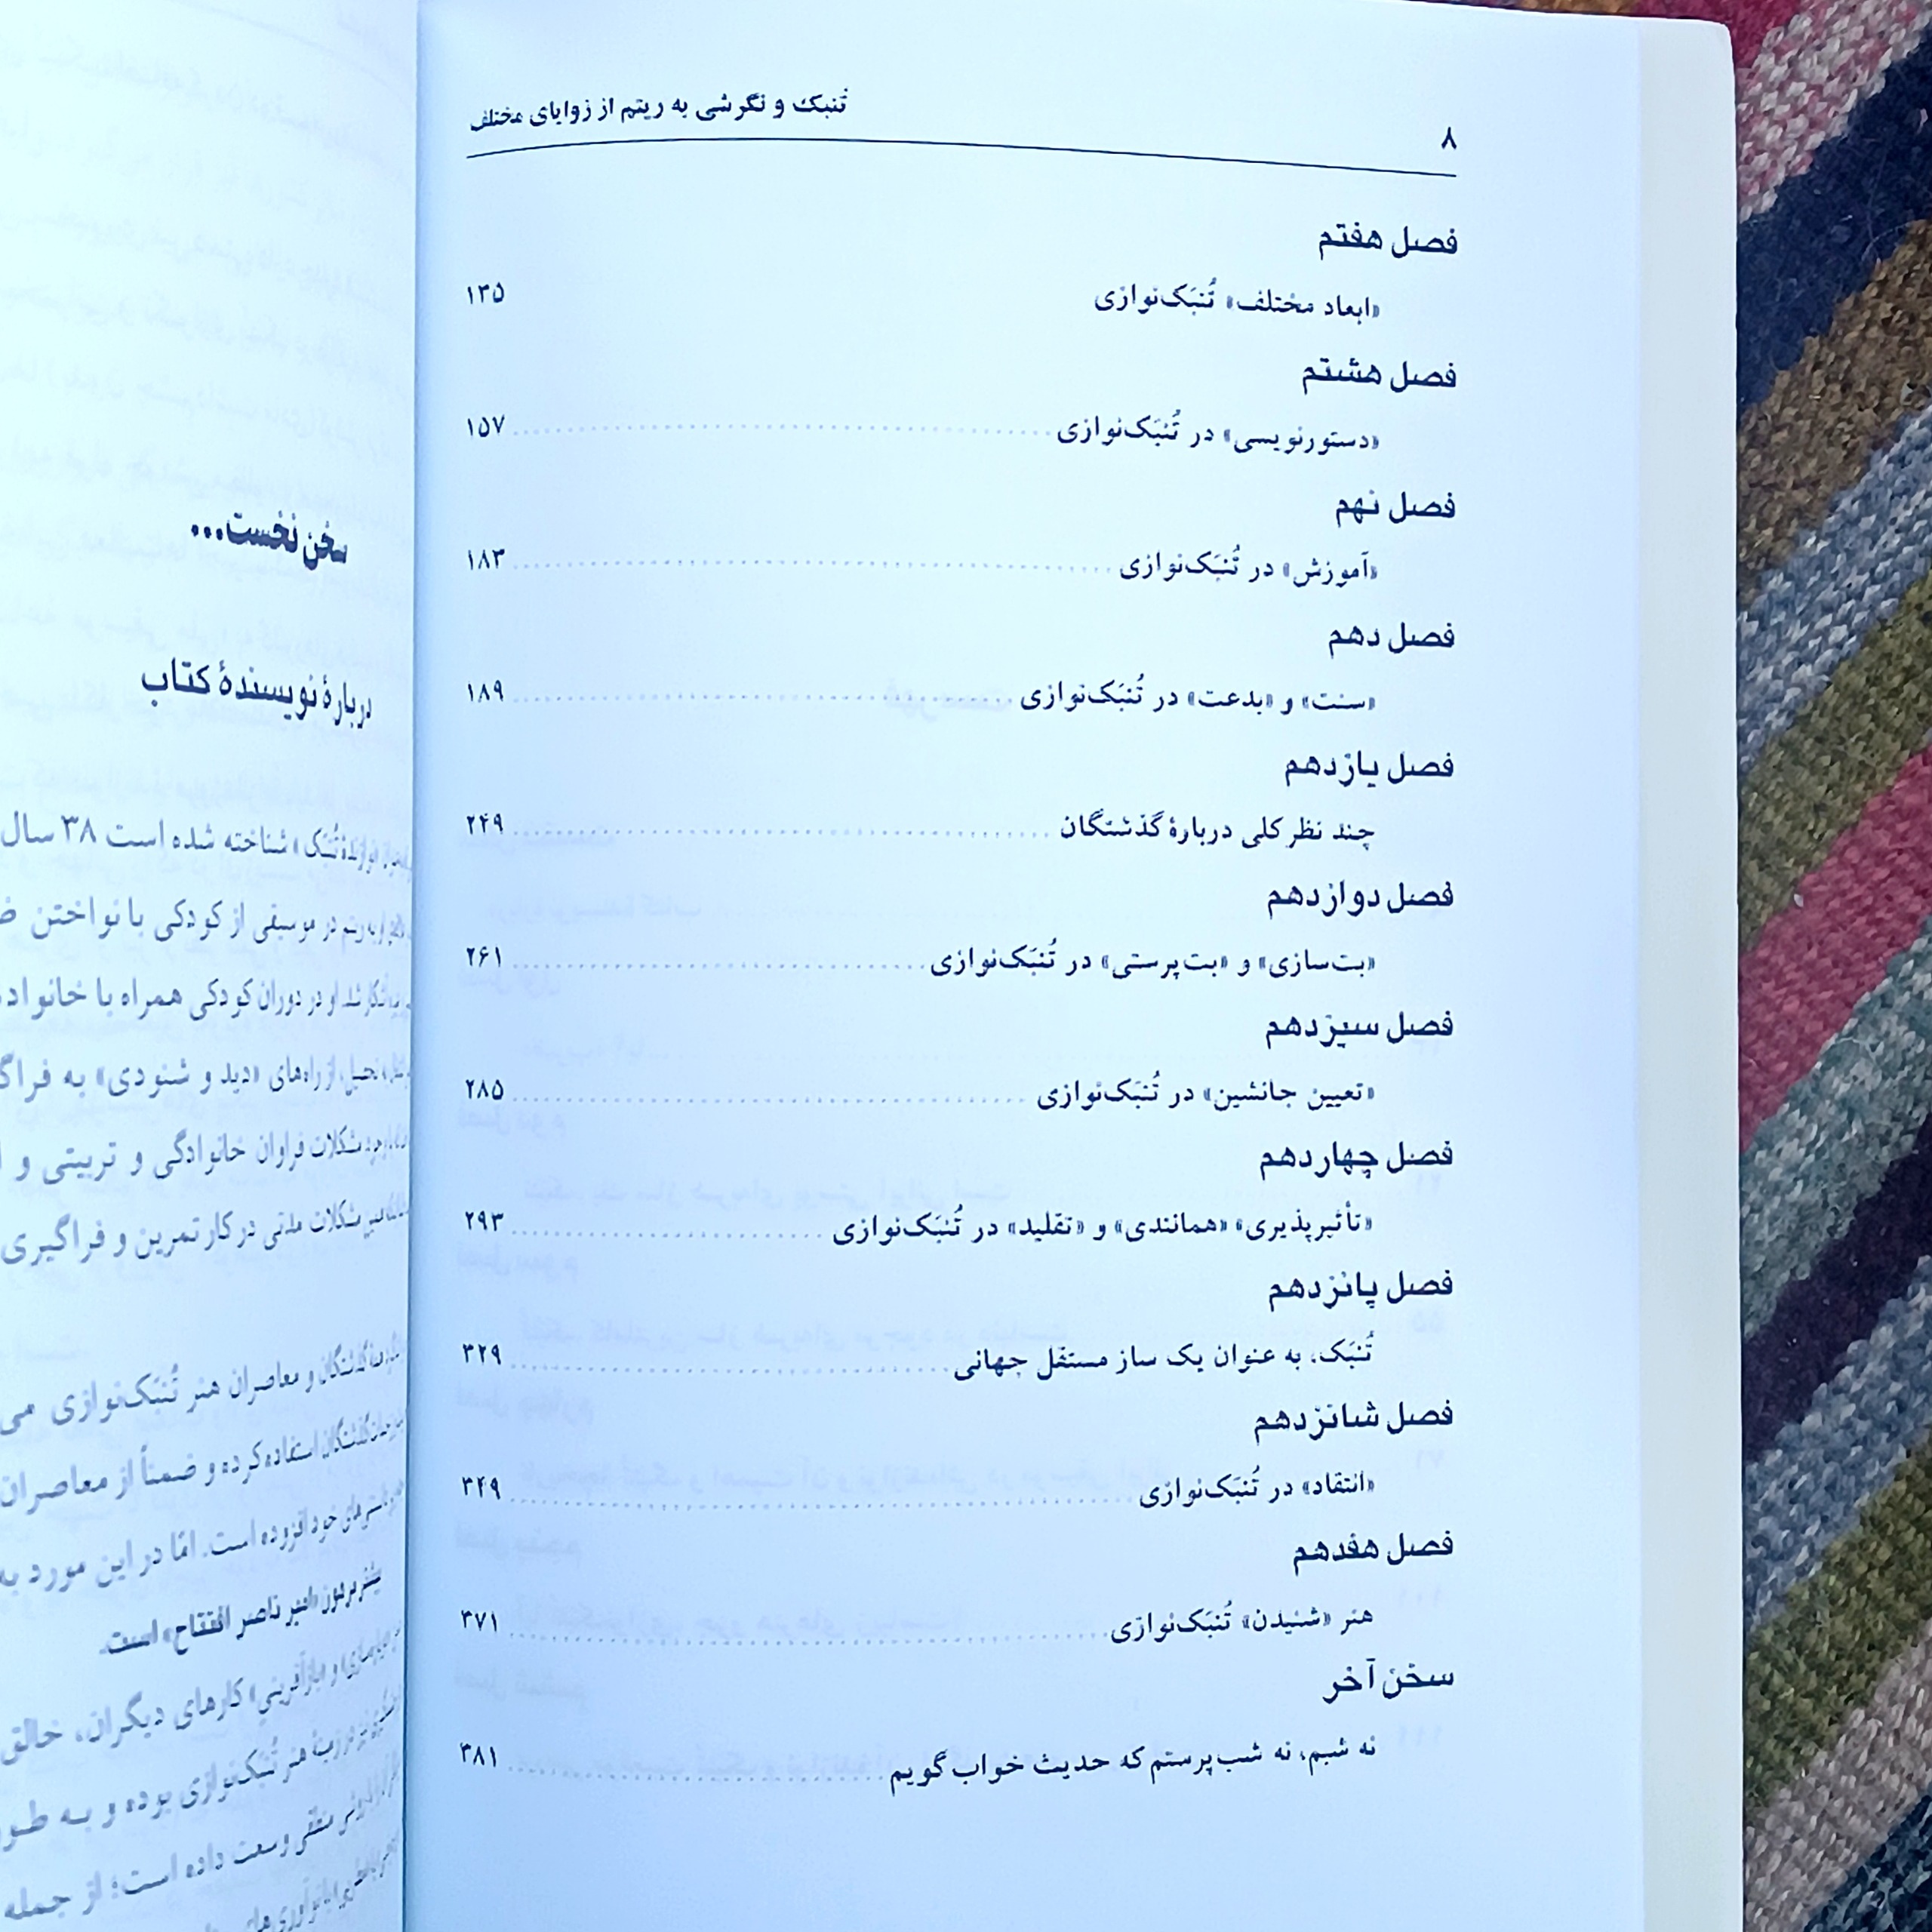 ۸
تُنبک و نگرشی به ریتم از زوایای مختلف
فصل هفتم
«ابعاد مختلف» تُنبَک‌نوازی ۱۳۵
فصل هشتم
«دستورنویسی» در تُنبَک‌نوازی ۱۵۷
فصل نهم
«آموزش» در تُنبَک‌نوازی ۱۸۳
فصل دهم
«سنت» و «بدعت» در تُنبَک‌نوازی ۱۸۹
فصل یازدهم
چند نظر کلی دربارهٔ گذشتگان ۲۴۹
فصل دوازدهم
«بت‌سازی» و «بت‌پرستی» در تُنبَک‌نوازی ۲۶۱
فصل سیزدهم
«تعیین جانشین» در تُنبَک‌نوازی ۲۸۵
فصل چهاردهم
«تأثیرپذیری» «همانندی» و «تقلید» در تُنبَک‌نوازی ۲۹۳
فصل پانزدهم
تُنبَک، به عنوان یک ساز مستقل جهانی ۳۲۹
فصل شانزدهم
«انتقاد» در تُنبَک‌نوازی ۳۴۹
فصل هفدهم
هنر «شنیدن» تُنبَک‌نوازی ۳۷۱
سخن آخر
نه شبم، نه شب‌پرستم که حدیث خواب گویم ۳۸۱
سخن نخست...
دربارهٔ نویسندهٔ کتاب
شناخته شده است ۳۸ سال
در موسیقی از کودکی با نواختن
او در دوران کودکی همراه با خانواده
تحصیل، از راه‌های «دید و شنودی» به
مشکلات فراوان خانوادگی و تربیتی و
مشکلات مدتی در کار تمرین و فراگیری
گذشتگان و معاصران هنر تُنبَک‌نوازی می
گذشتگان استفاده کرده و ضمناً از معاصران
خود افزوده است. امّا در این مورد به
«امیر ناصر افتتاح» است.
و بازآفرینی» کارهای دیگران، خالق
هنر تُنبَک‌نوازی بوده و به طور
منطقی وسعت داده است؛ از جمله